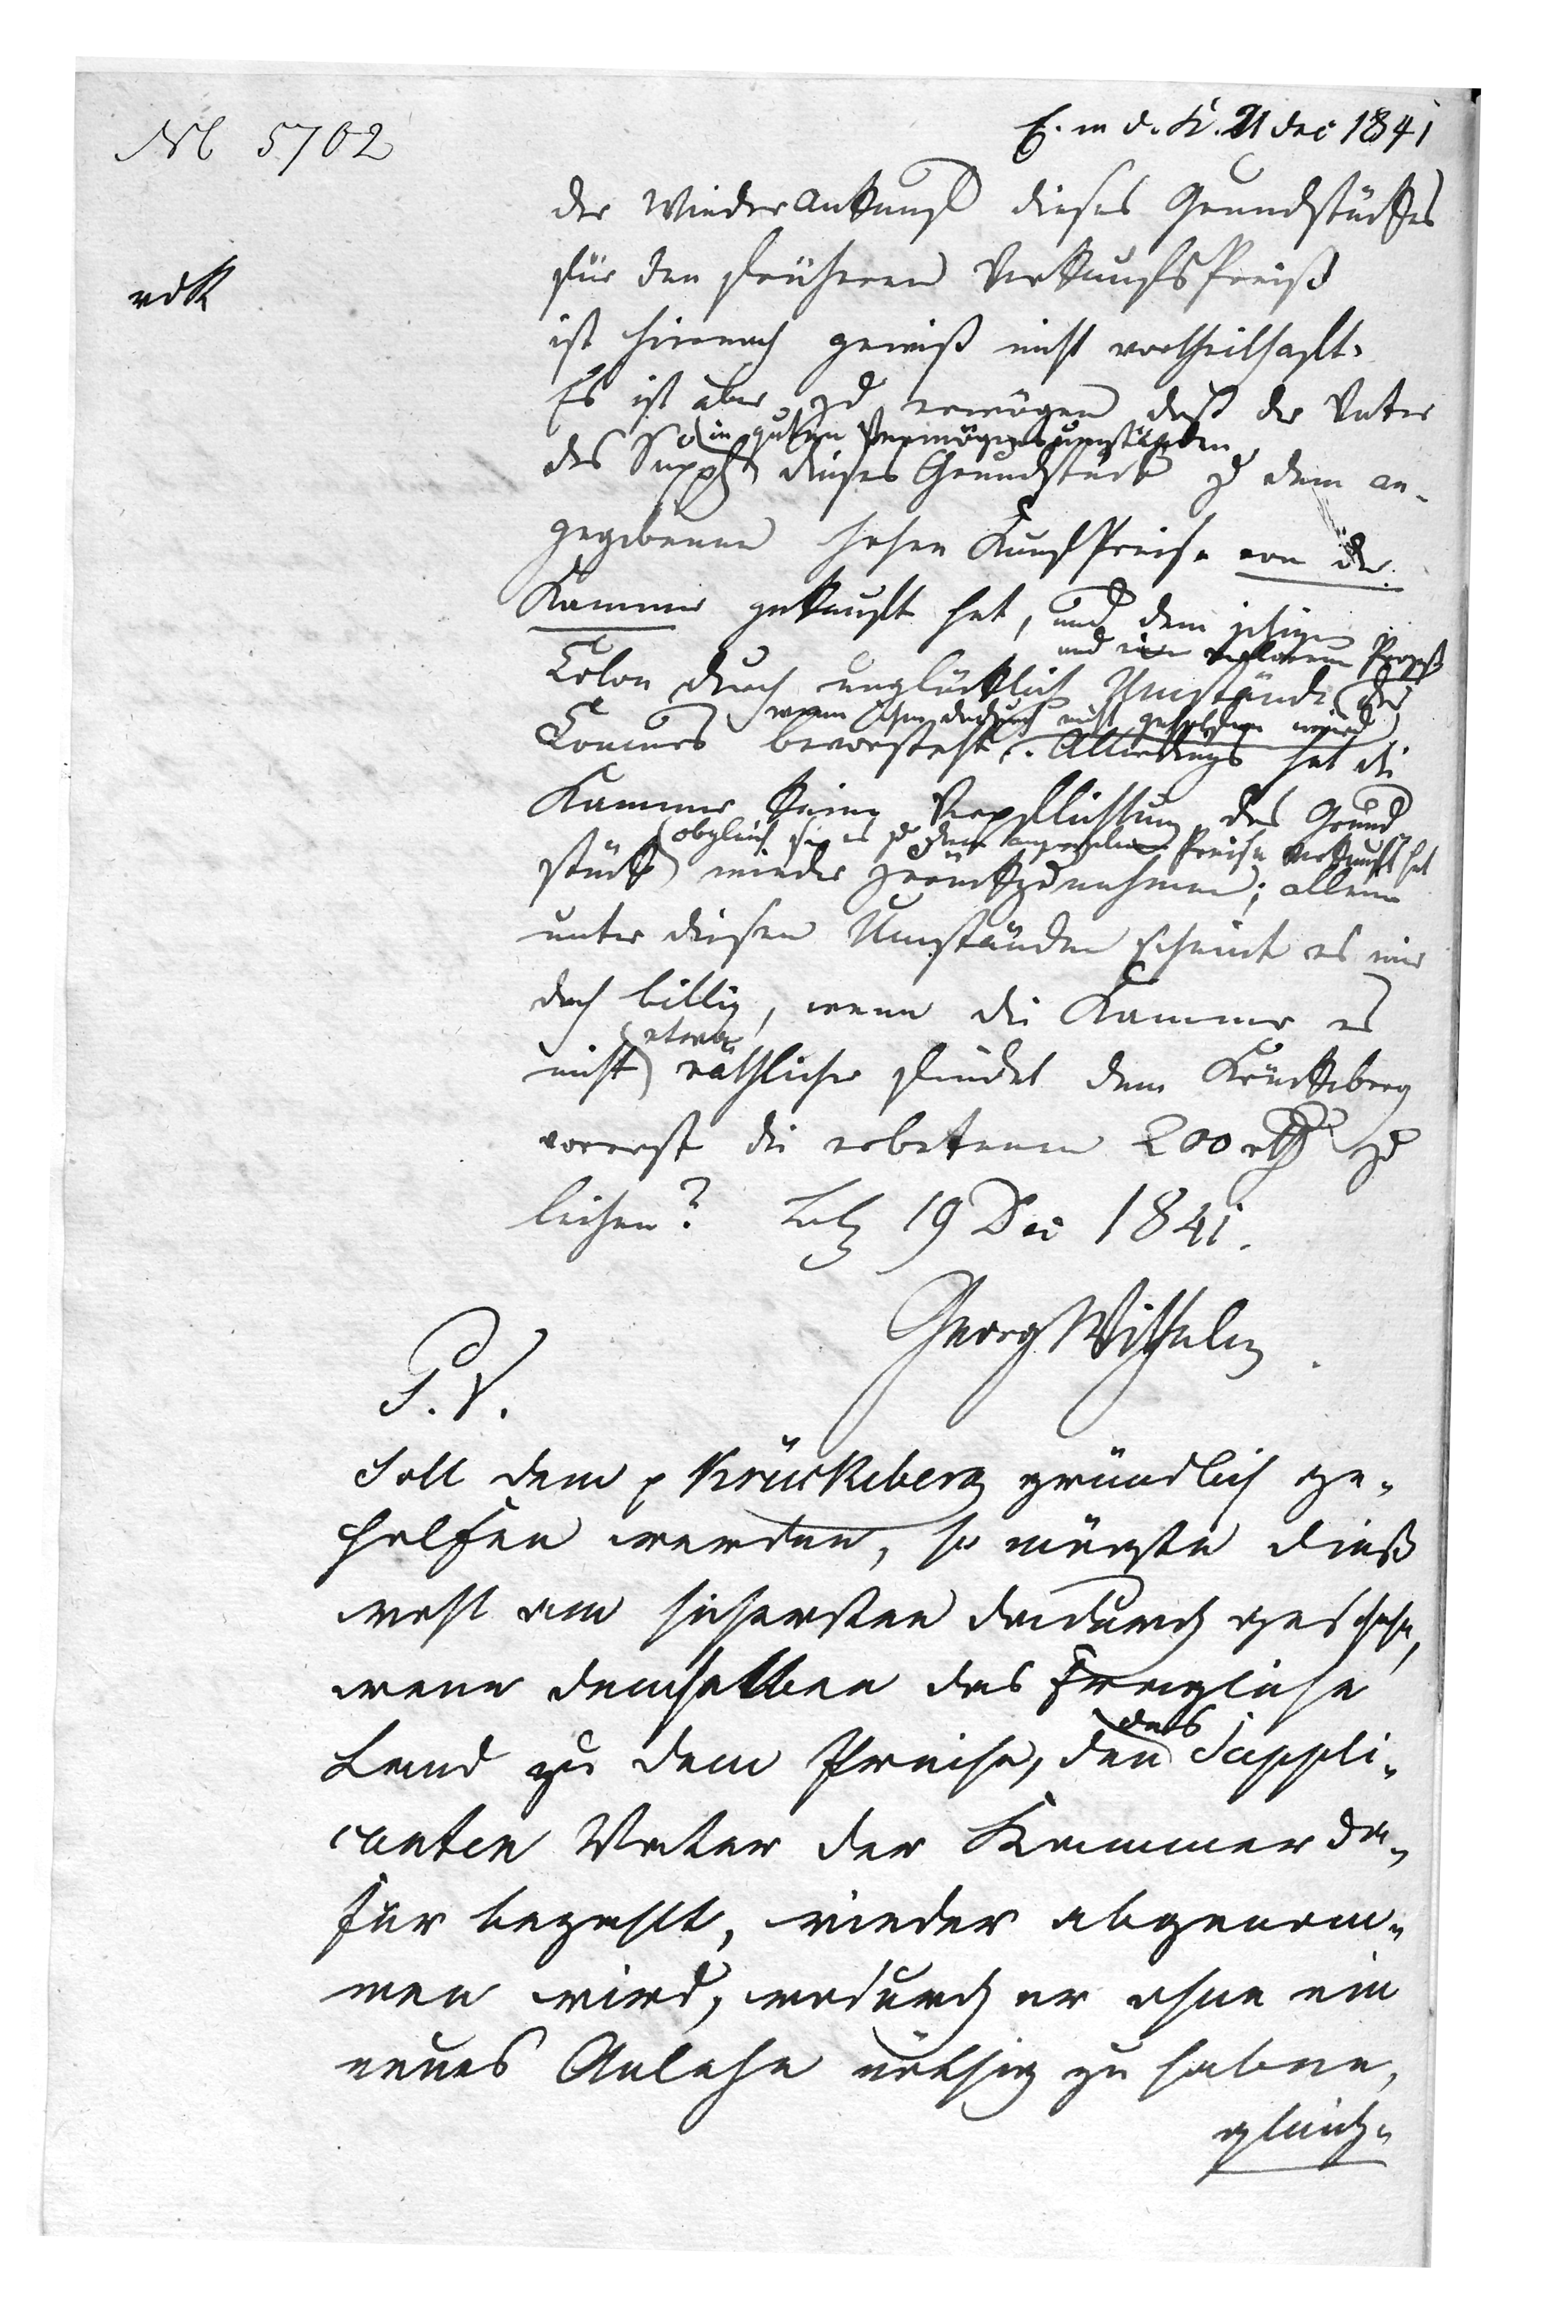 Nl 5702
E. in d. K. 21 dec 1841
rdK
der Wiederankauf dieses Grundstückes
für den früheren VerkaufsPreiß
ist hiernach gewiß nicht vortheilhaft.
Es ist aber zu erwägen daß der Vater
in guten Vermögensumständen
des Suppl dieses Grundstück z dem an-
gegebenen hohen KaufPreise von der
Kammer gekauft hat, und dem jetzigen
und verlornen Prozeß
Colon durch unglückliche Umstände der
wenn ihm dadurch nicht geholfen würd
Concurs bevorsteht. Allerdings hat die
Kammer keine Verpflichtung das Grund
obgleich sie es zu dem angegebenen Preise verkauft hat
stück wieder zurückzunehmen; allein
unter diesen Umständen scheint es mir
doch billig, wenn die Kammer es
etwa
nicht räthlicher findet dem Krückeberg
vorerst die erbetenen 200 rth zu
leihen? Bbg 19 Dec 1841.
Georg Wilhelm
P. V.
Soll dem p Krückeberg gründlich ge-
holfen werden, so mögte dieß
wohl am sichersten dadurch geschehn,
wenn demselben das fragliche
Land zu dem Preise, den
des
Suppli-
canten Vater der Kammer da-
für bezahlt, wieder abgenom-
men wird, wodurch er ohne ein
neues Anlehn nöthig zu haben,
gleich-